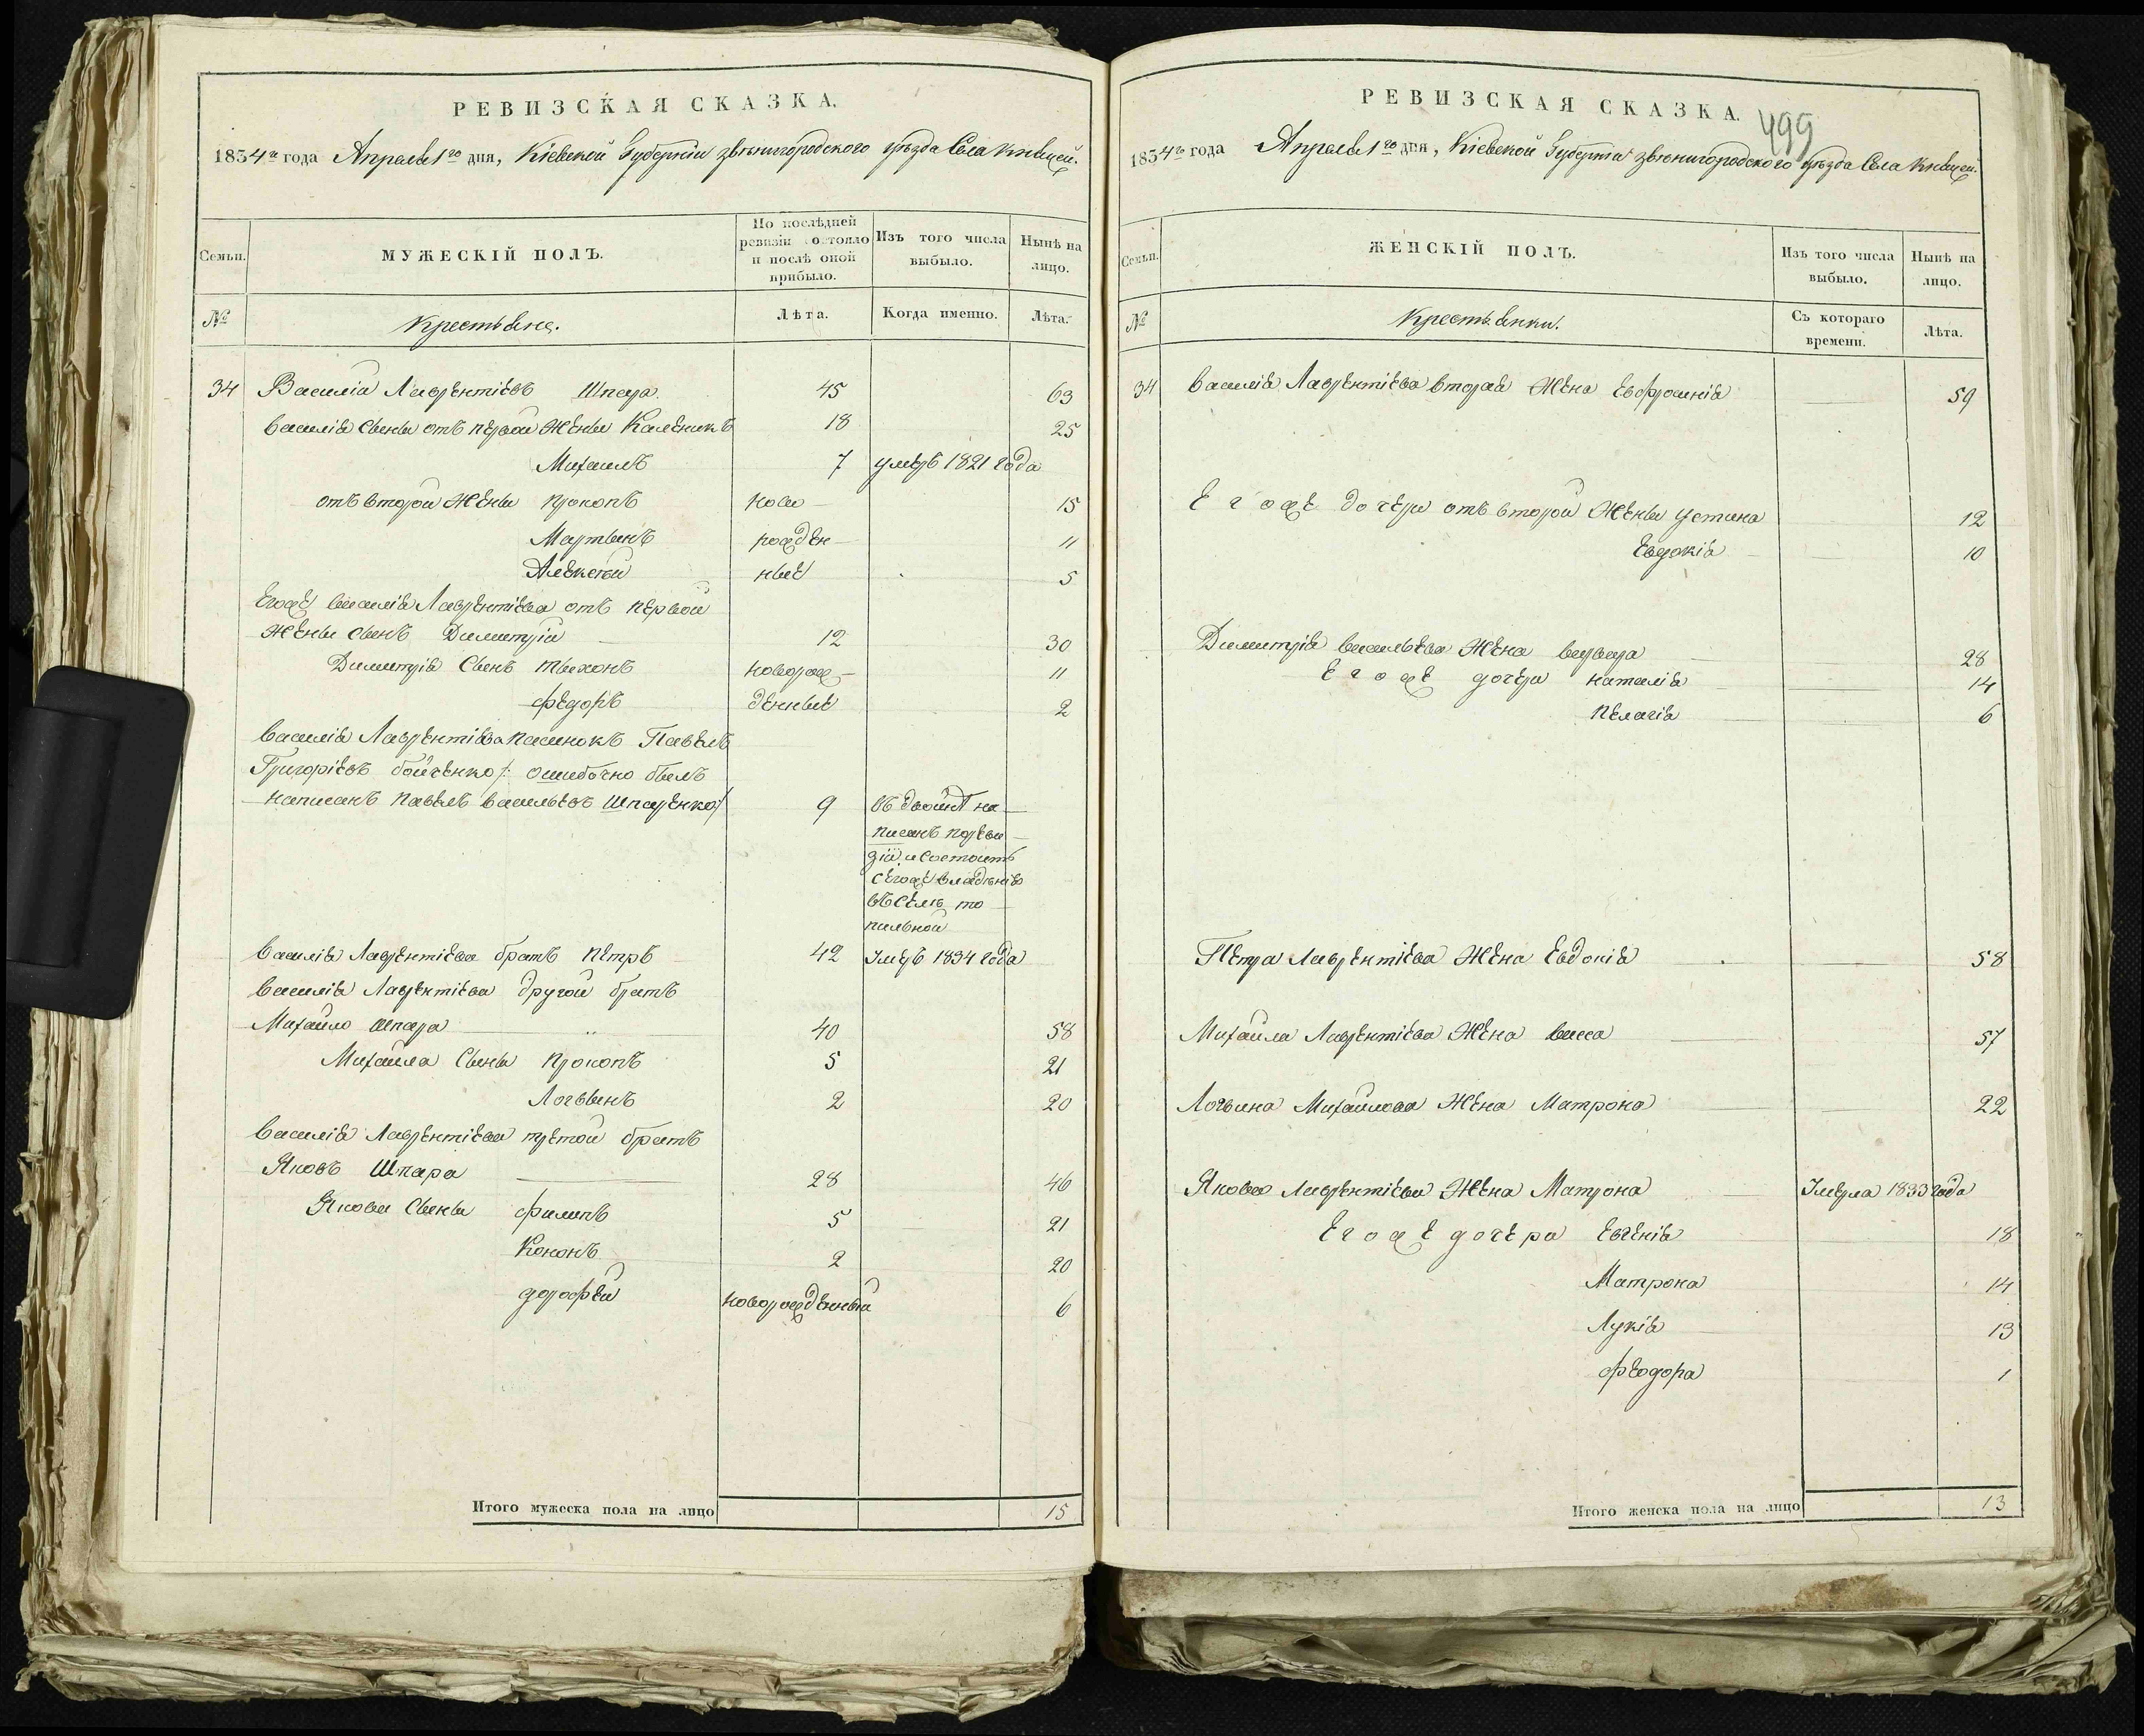 РЕВИЗСКАЯ СКАЗКА.
1834го года Апреля 1го дня, Кіевской Губерніи звѣнигородского уѣзда Села
Семьи.
МУЖЕСКІЙ ПОЛЪ.
По послѣдней ревизіи состояло и послѣ оной прибыло.
Изъ того числа выбыло.
Нынѣ на лицо.
№
Крестьяне.
Лѣта.
Когда именно.
Лѣта.
34 Василій Лаврентіевъ Шпара 45 63
Василія Сыны отъ первой Жены Каленикъ 18 25
Михаилъ 7 умеръ 1821 года
отъ второй Жены прокопъ ново 15
Мартынъ рожден 11
Алексѣй ные 5
Егоже василія Лаврентіева отъ первой
Жены Сынъ Димитрій 12 30
Димитрія Сынъ тыхонъ новорож 11
федоръ денные 2
Василія Лаврентіева пасынокъ Павелъ
Григоріевъ бойченко /: ошибочно былъ
написанъ павелъ васильевъ шпаренко :/ 9 въ двойнѣ на
писанъ пореви
зіи, и Состоитъ
Сегоже владѣнія
въ Селѣ то
пильной
Василія Лаврентіева братъ Петръ 42 Умеръ 1834 года
Василія Лаврентіева другой братъ
Михайло Шпара 40 58
Михайла Сыны Прокопъ 5 21
Логвынъ 2 20
Василія Лаврентіева третой братъ
Яковъ Шпара 28 46
Якова Сыны филипъ 5 21
Кононъ 2 20
дорофей новорожденный 6
Итого мужеска пола на лицо 15
РЕВИЗСКАЯ СКАЗКА.
499
1834го года Апреля 1го дня, Кіевской Губерніи звѣнигородского уѣзда Села
Семьи.
ЖЕНСКІЙ ПОЛЪ.
Изъ того числа выбыло.
Нынѣ на лицо.
№
Крестьянки.
Съ котораго времени.
Лѣта.
34 Василія Лаврентіева вторая Жена Евфросинія 59
Егоже дочери отъ второй Жены устина 12
Евдокія 10
Димитрія васильева Жена варвара 28
Егоже дочери наталія 14
пелагія 6
Петра Лаврентіева Жена Евдокія 58
Михайла Лаврентіева Жена васса 57
Логвина Михайлова Жена Матрона 22
Якова Лаврентіева Жена Матрона Умерла 1833 года
Егоже дочера Евгенія 18
Матрона 14
Лукія 13
феодора 1
Итого женска пола на лицо 13